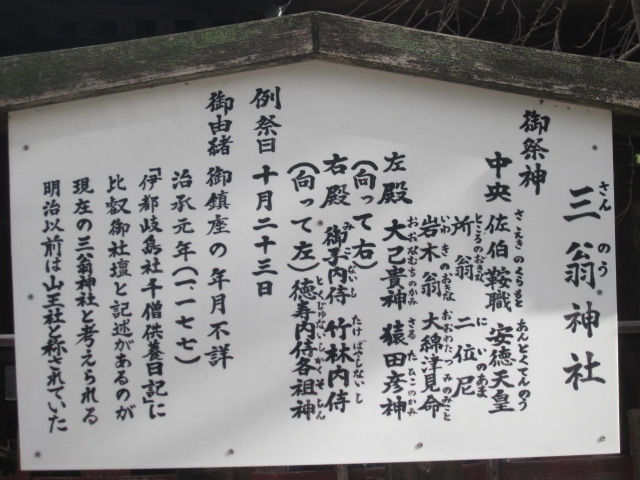 三翁神社
さんのう
御祭神
中央 佐伯鞍職 安徳天皇
さえきのくらもと あんとくてんのう
所翁 二位尼
ところのおきな にいのあま
岩木翁 大綿津見命
いわきのおきな おおわたつみのみこと
左殿 大己貴神 猿田彦神
おおなむちのかみ さるたひこのかみ
(向って右)
右殿 御子内侍 竹林内侍
みこないし たけばやしないし
(向って左) 徳寿内侍各祖神
とくじゅないしかくそしん
例祭日 十月二十三日
御由緒 御鎮座の年月不詳
治承元年(一、一七七)
「伊都岐島社千僧供養日記」に
比叡御社壇と記述があるのが
現在の三翁神社と考えられる
明治以前は山王社と称されていた